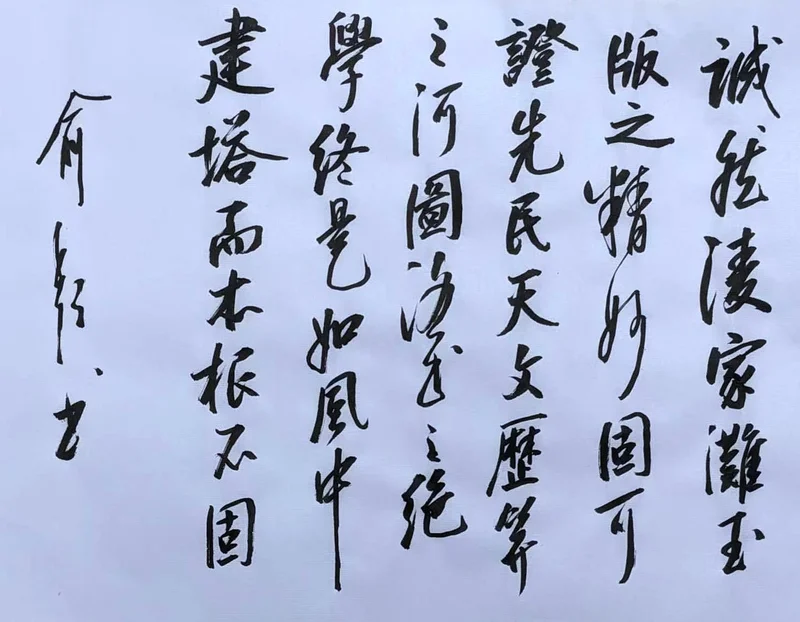 誠然淩家灘玉
版之精妙固可
證先民天文歷算
之河圖洛书之绝
學終是如風中
建塔而本根不固
俞 书